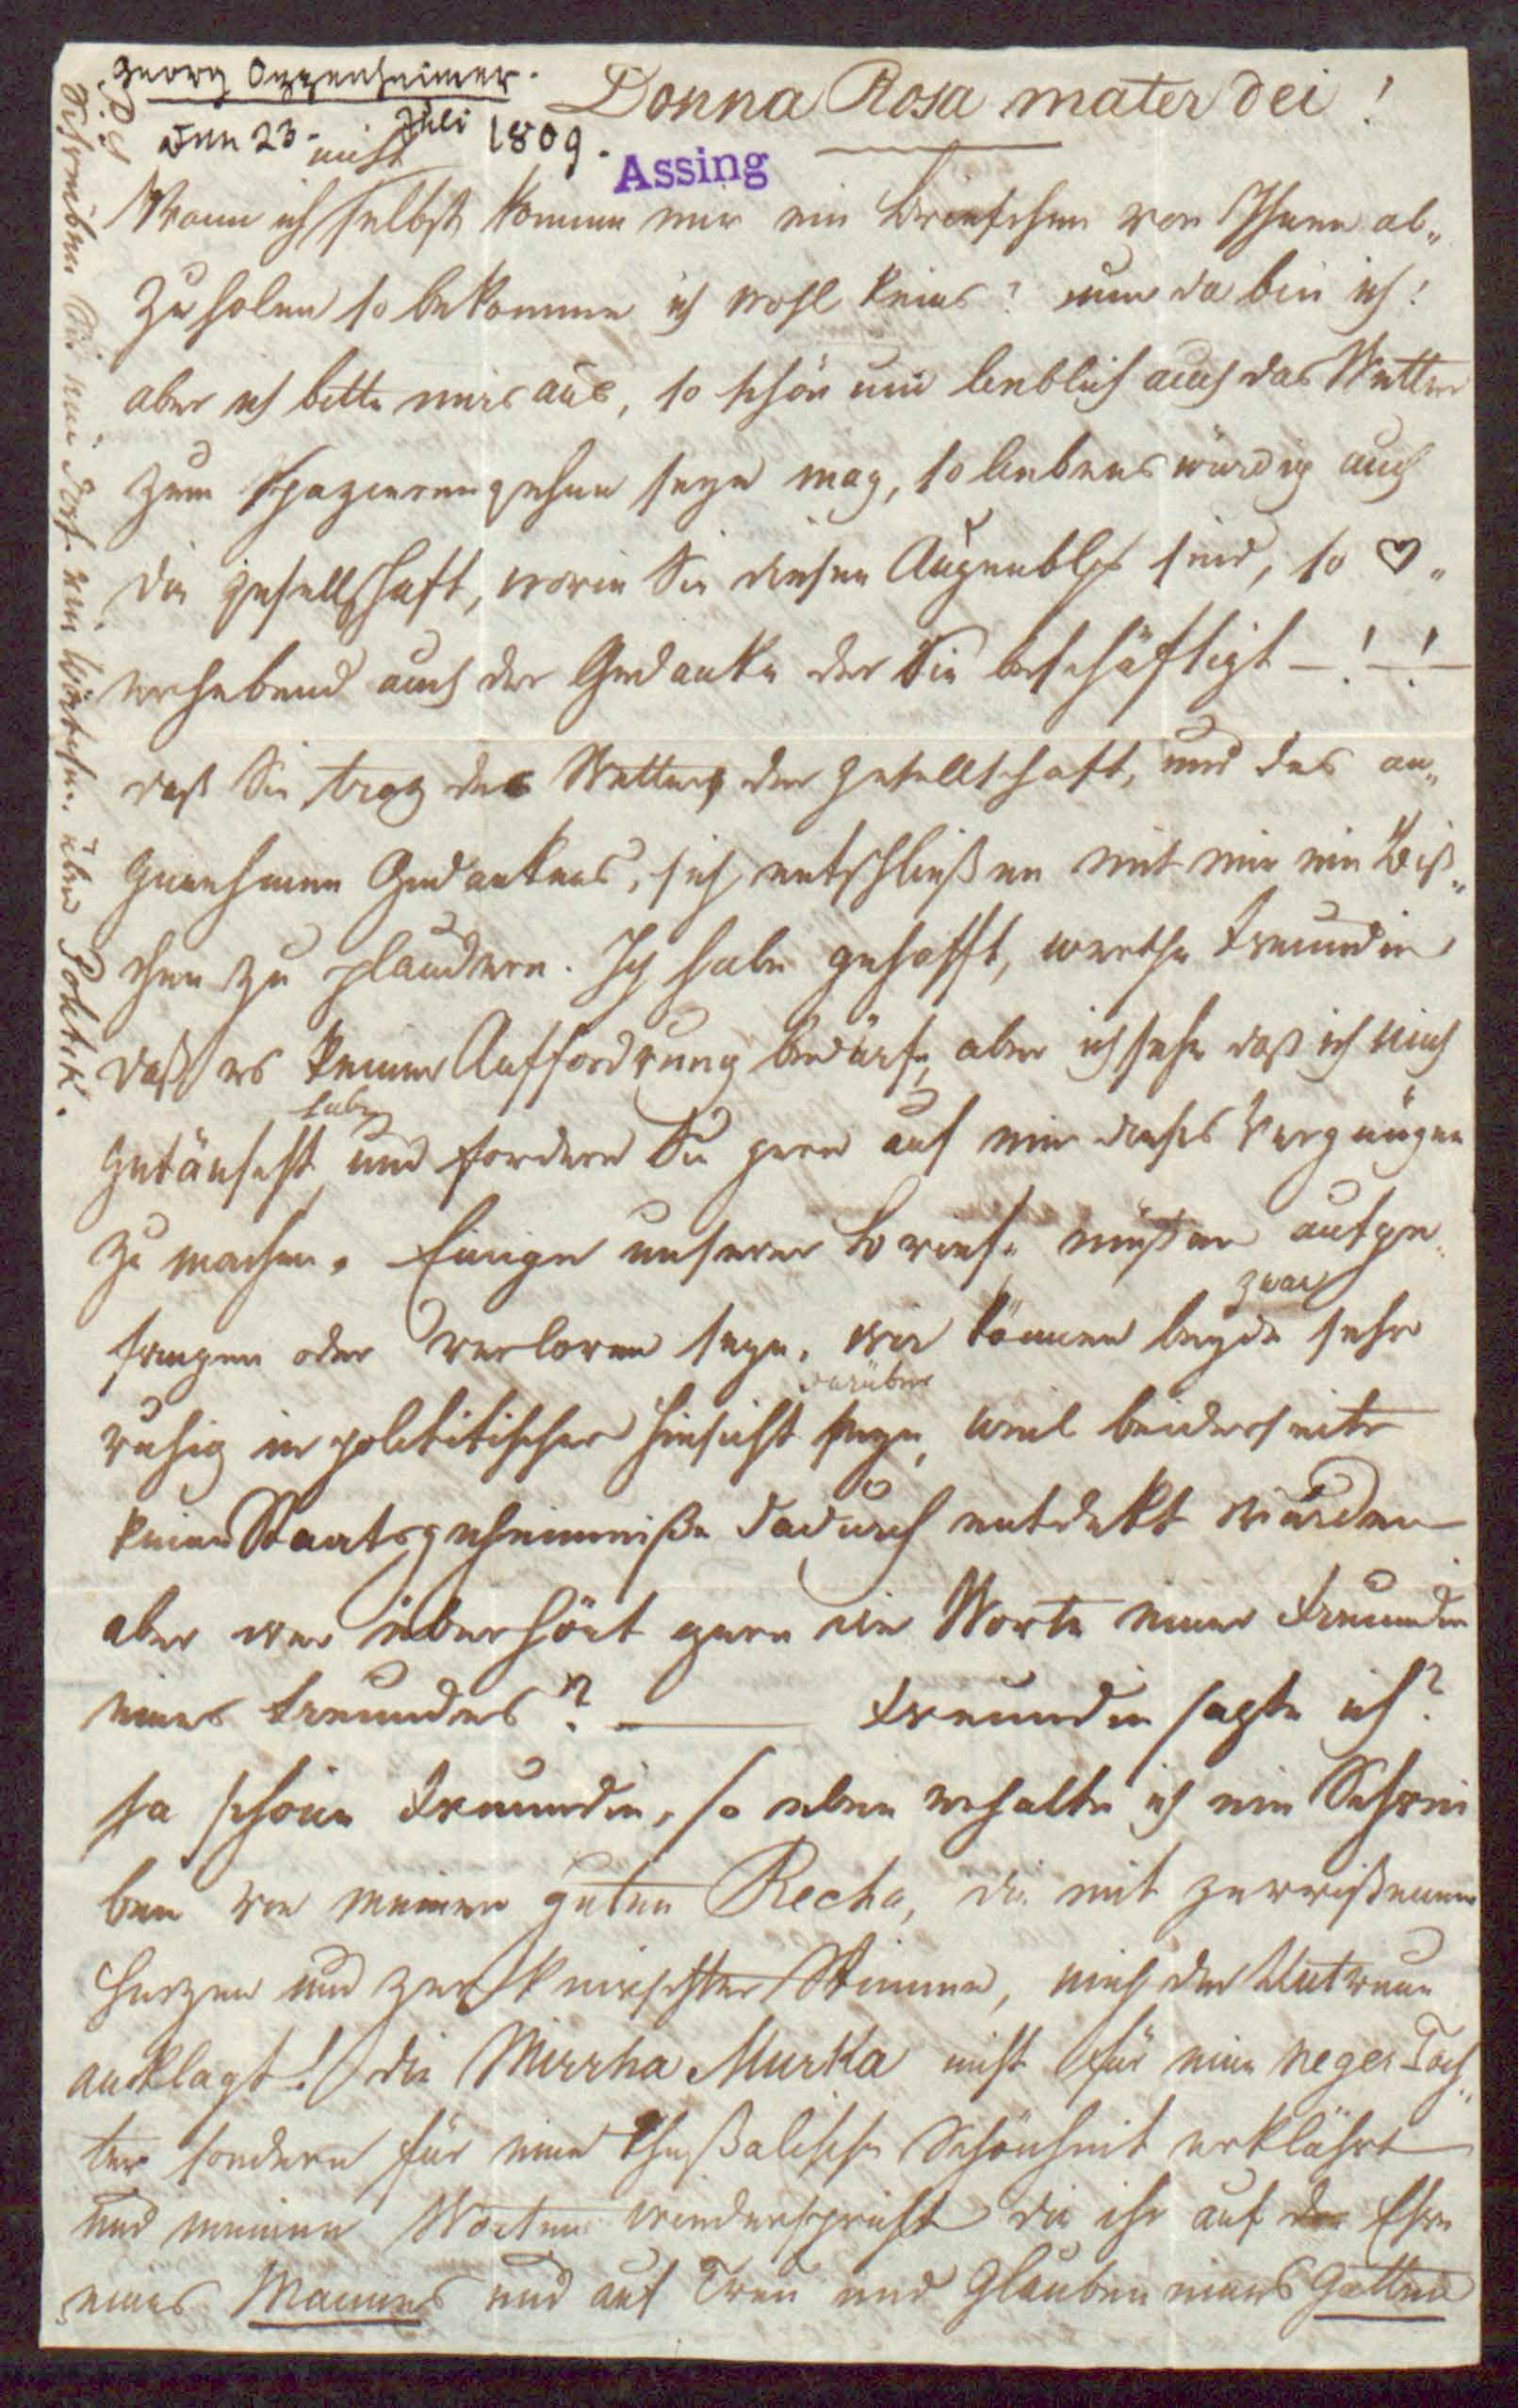 Georg Oppenheimer.
Den 23. Juli 1809.
Donna Rosa mater dei!
Assing
Wenn ich nicht selbst komme mir ein Briefchen von Ihnen ab„
zuholen so bekomme ich wohl keins? nun da bin ich!
aber ich bitte mir aus, so schön und lieblich auch das Wetter
zum spazierengehen seyn mag, so liebenswürdig auch
die Gesellschaft, worin Sie diesen Augenblick sind, so ♡„
erhebend auch der Gedanke der Sie beschäftigt —!—!—
daß Sie troz des Wetters der Gesellschaft, und des an„
genehmen Gedankens, sich entschließen mit mir ein Biß„
chen zu plaudern. Ich habe gehofft, werthe Freundin
daß es keiner Auffordrung bedürfe, aber ich sehe daß ich mich
getäuscht habe und fordere Sie gern auf mir dieses Vergnügen
zu machen. Einige unserer Briefe müßen aufge„
fangen oder verloren seyn. Wir können beyde zwar sehr
ruhig in polititischer Hinsicht darüber seyn, weil beiderseits
keine Staatsgeheimniße dadurch entdekt würden
aber wer überhört gern die Worte einer Freundin
eines Freundes? — Freundin sagte ich?
ja schöne Freundin, so eben erhalte ich ein Schrei
ben von meiner guten Recha, die mit zerrißenem
Herzen und zerknirschter Stimme, mich der Untreue
anklagt! die Mirrha Murka nicht für eine Neger Toch„
ter sondern für eine Theßalische Schönheit erklährt
und meinen Worten wiederspricht die ich ihr auf Ehre
eines Mannes und auf Treu und Glauben eines Gatten
P.S. Schreiben Sie mir doch ein Wörtchen über Politik.